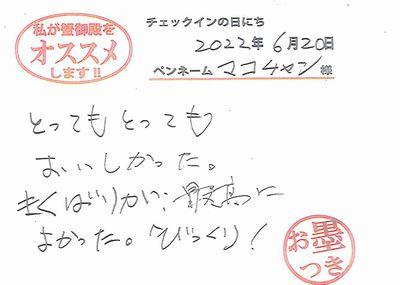 私が蟹御殿を
オススメ
します!!
チェックインの日にち
2022年 6月20日
ペンネーム マコチャン 様
とってもとっても
おいしかった。
きくばり 最高に
よかった。びっくり!
お墨
つき